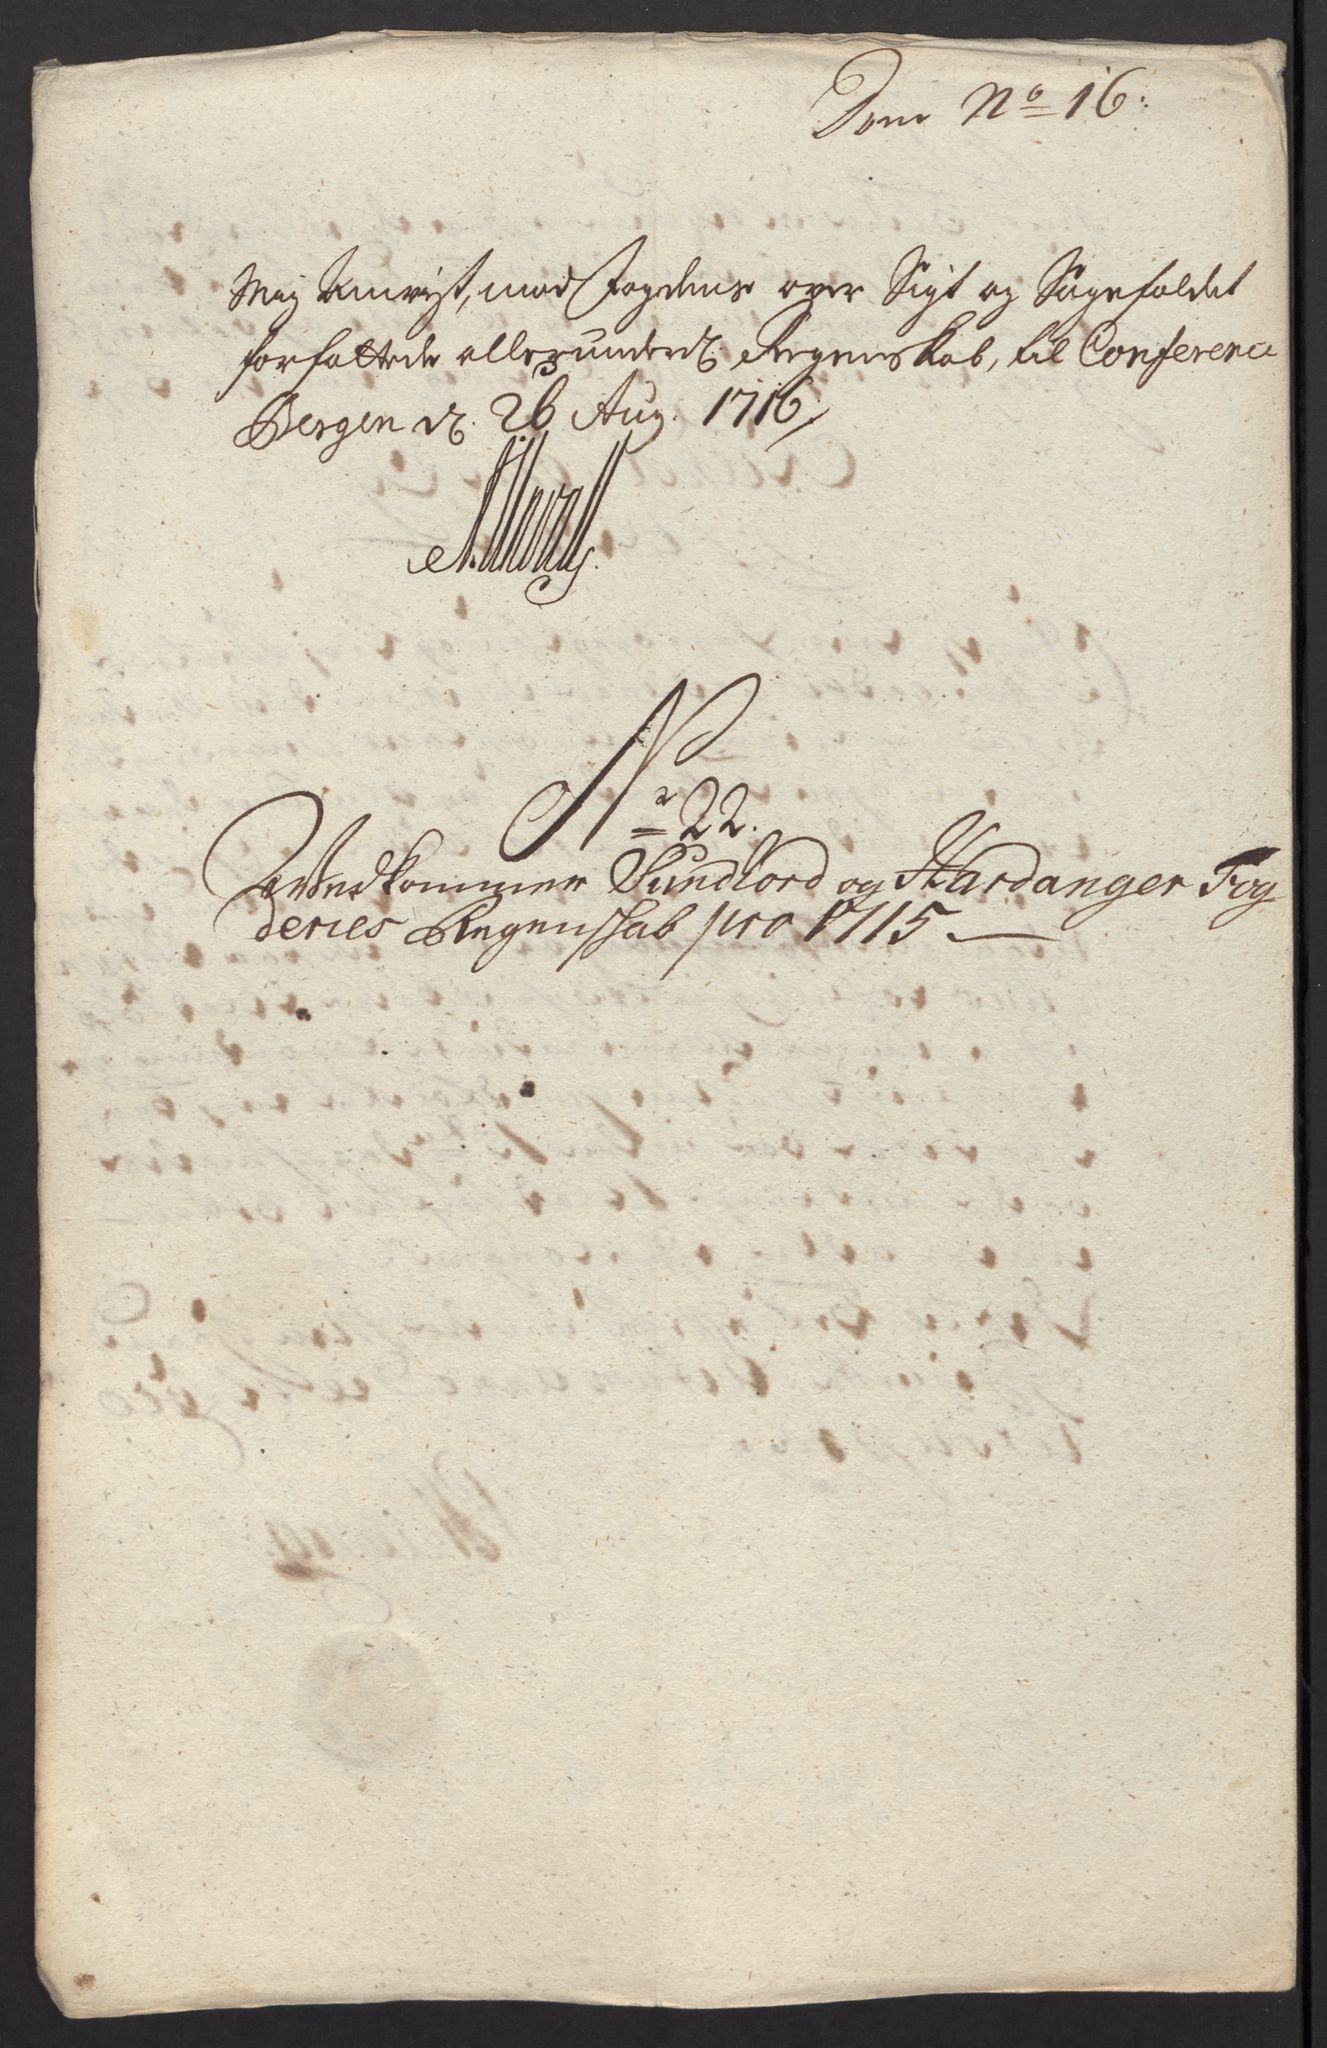 Dom No 16:
Mig Anvist, med fogdens over Sigt og Sagefaldet
forfattede allerunderd. Regenskab, til Conference
Bergen d. 26 Aug. 1716
No 22.
Wedkommer Sundhord og Hardanger Fog
deries Regenschab pro 1715